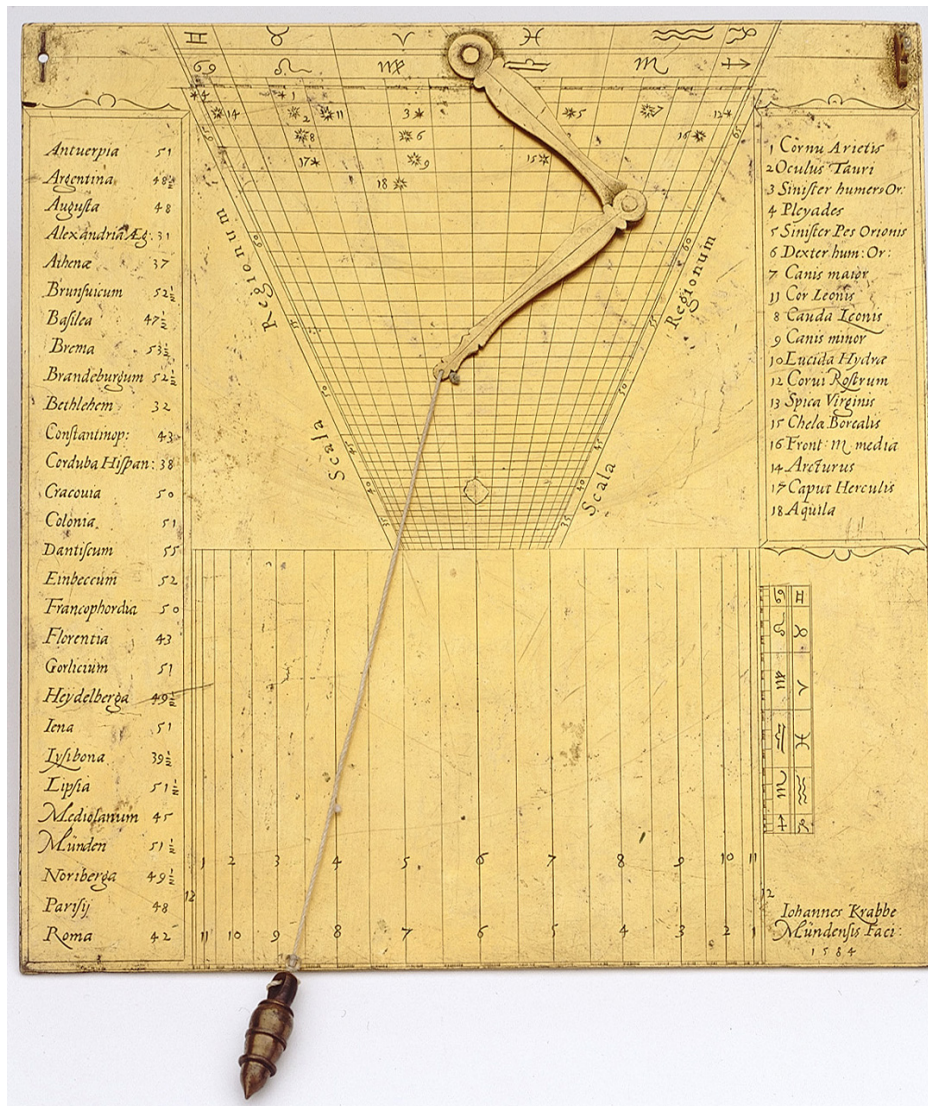 Antuerpia 51
Argentina 48½
Augusta 48
Alexandria Æg. 31
Athenæ 37
Brunsuicum 52½
Basilea 47½
Brema 53½
Brandeburgum 52½
Bethlehem 32
Constantinop: 43
Corduba Hispan: 38
Cracouia 50
Colonia 51
Dantiscum 55
Einbeccum 52
Francophordia 50
Florentia 43
Gorlicium 51
Heydelberga 49½
Iena 51
Lysibona 39½
Lipsia 51½
Mediolanum 45
Münden 51½
Noriberga 49½
Parisij 48
Roma 42
♊ ♉ ♈ ♓ ♒ ♑
♋ ♌ ♍ ♎ ♏ ♐
4 1
14 2 11 3 5 7 12
8 6 16
17 9 15
18
Scala Regionum
60 55 50 45 40 35
Scala Regionum
65 60 55 50 45 40 35
1 Cornu Arietis
2 Oculus Tauri
3 Sinister humer9 Or:
4 Pleyades
5 Sinister Pes Orionis
6 Dexter hum: Or:
7 Canis maior
11 Cor Leonis
8 Cauda Leonis
9 Canis minor
10 Lucida Hydræ
12 Corui Rostrum
13 Spica Virginis
15 Chela Borealis
16 Front: ♏ media
14 Arcturus
17 Caput Herculis
18 Aquila
♋ ♊
♌ ♉
♍ ♈
♎ ♓
♏ ♒
♐ ♑
1 2 3 4 5 6 7 8 9 10 11
12 12
11 10 9 8 7 6 5 4 3 2 1
Iohannes Krabbe
Mündensis Faci:
1584